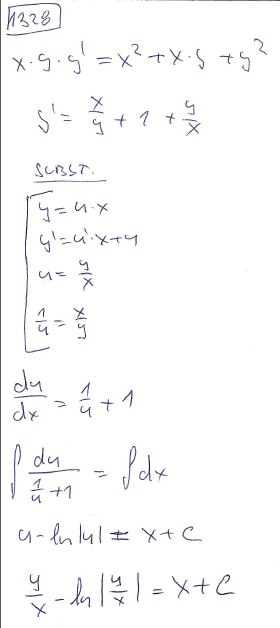 1328
x·y·y' = x² + x·y + y²
y' = x/y + 1 + y/x
SUBST.
y = u·x
y' = u'·x+u
u = y/x
1/u = x/y
du/dx = 1/u + 1
∫ du/(1/u +1) = ∫dx
u - ln|u| = x + C
y/x - ln|y/x| = x + C